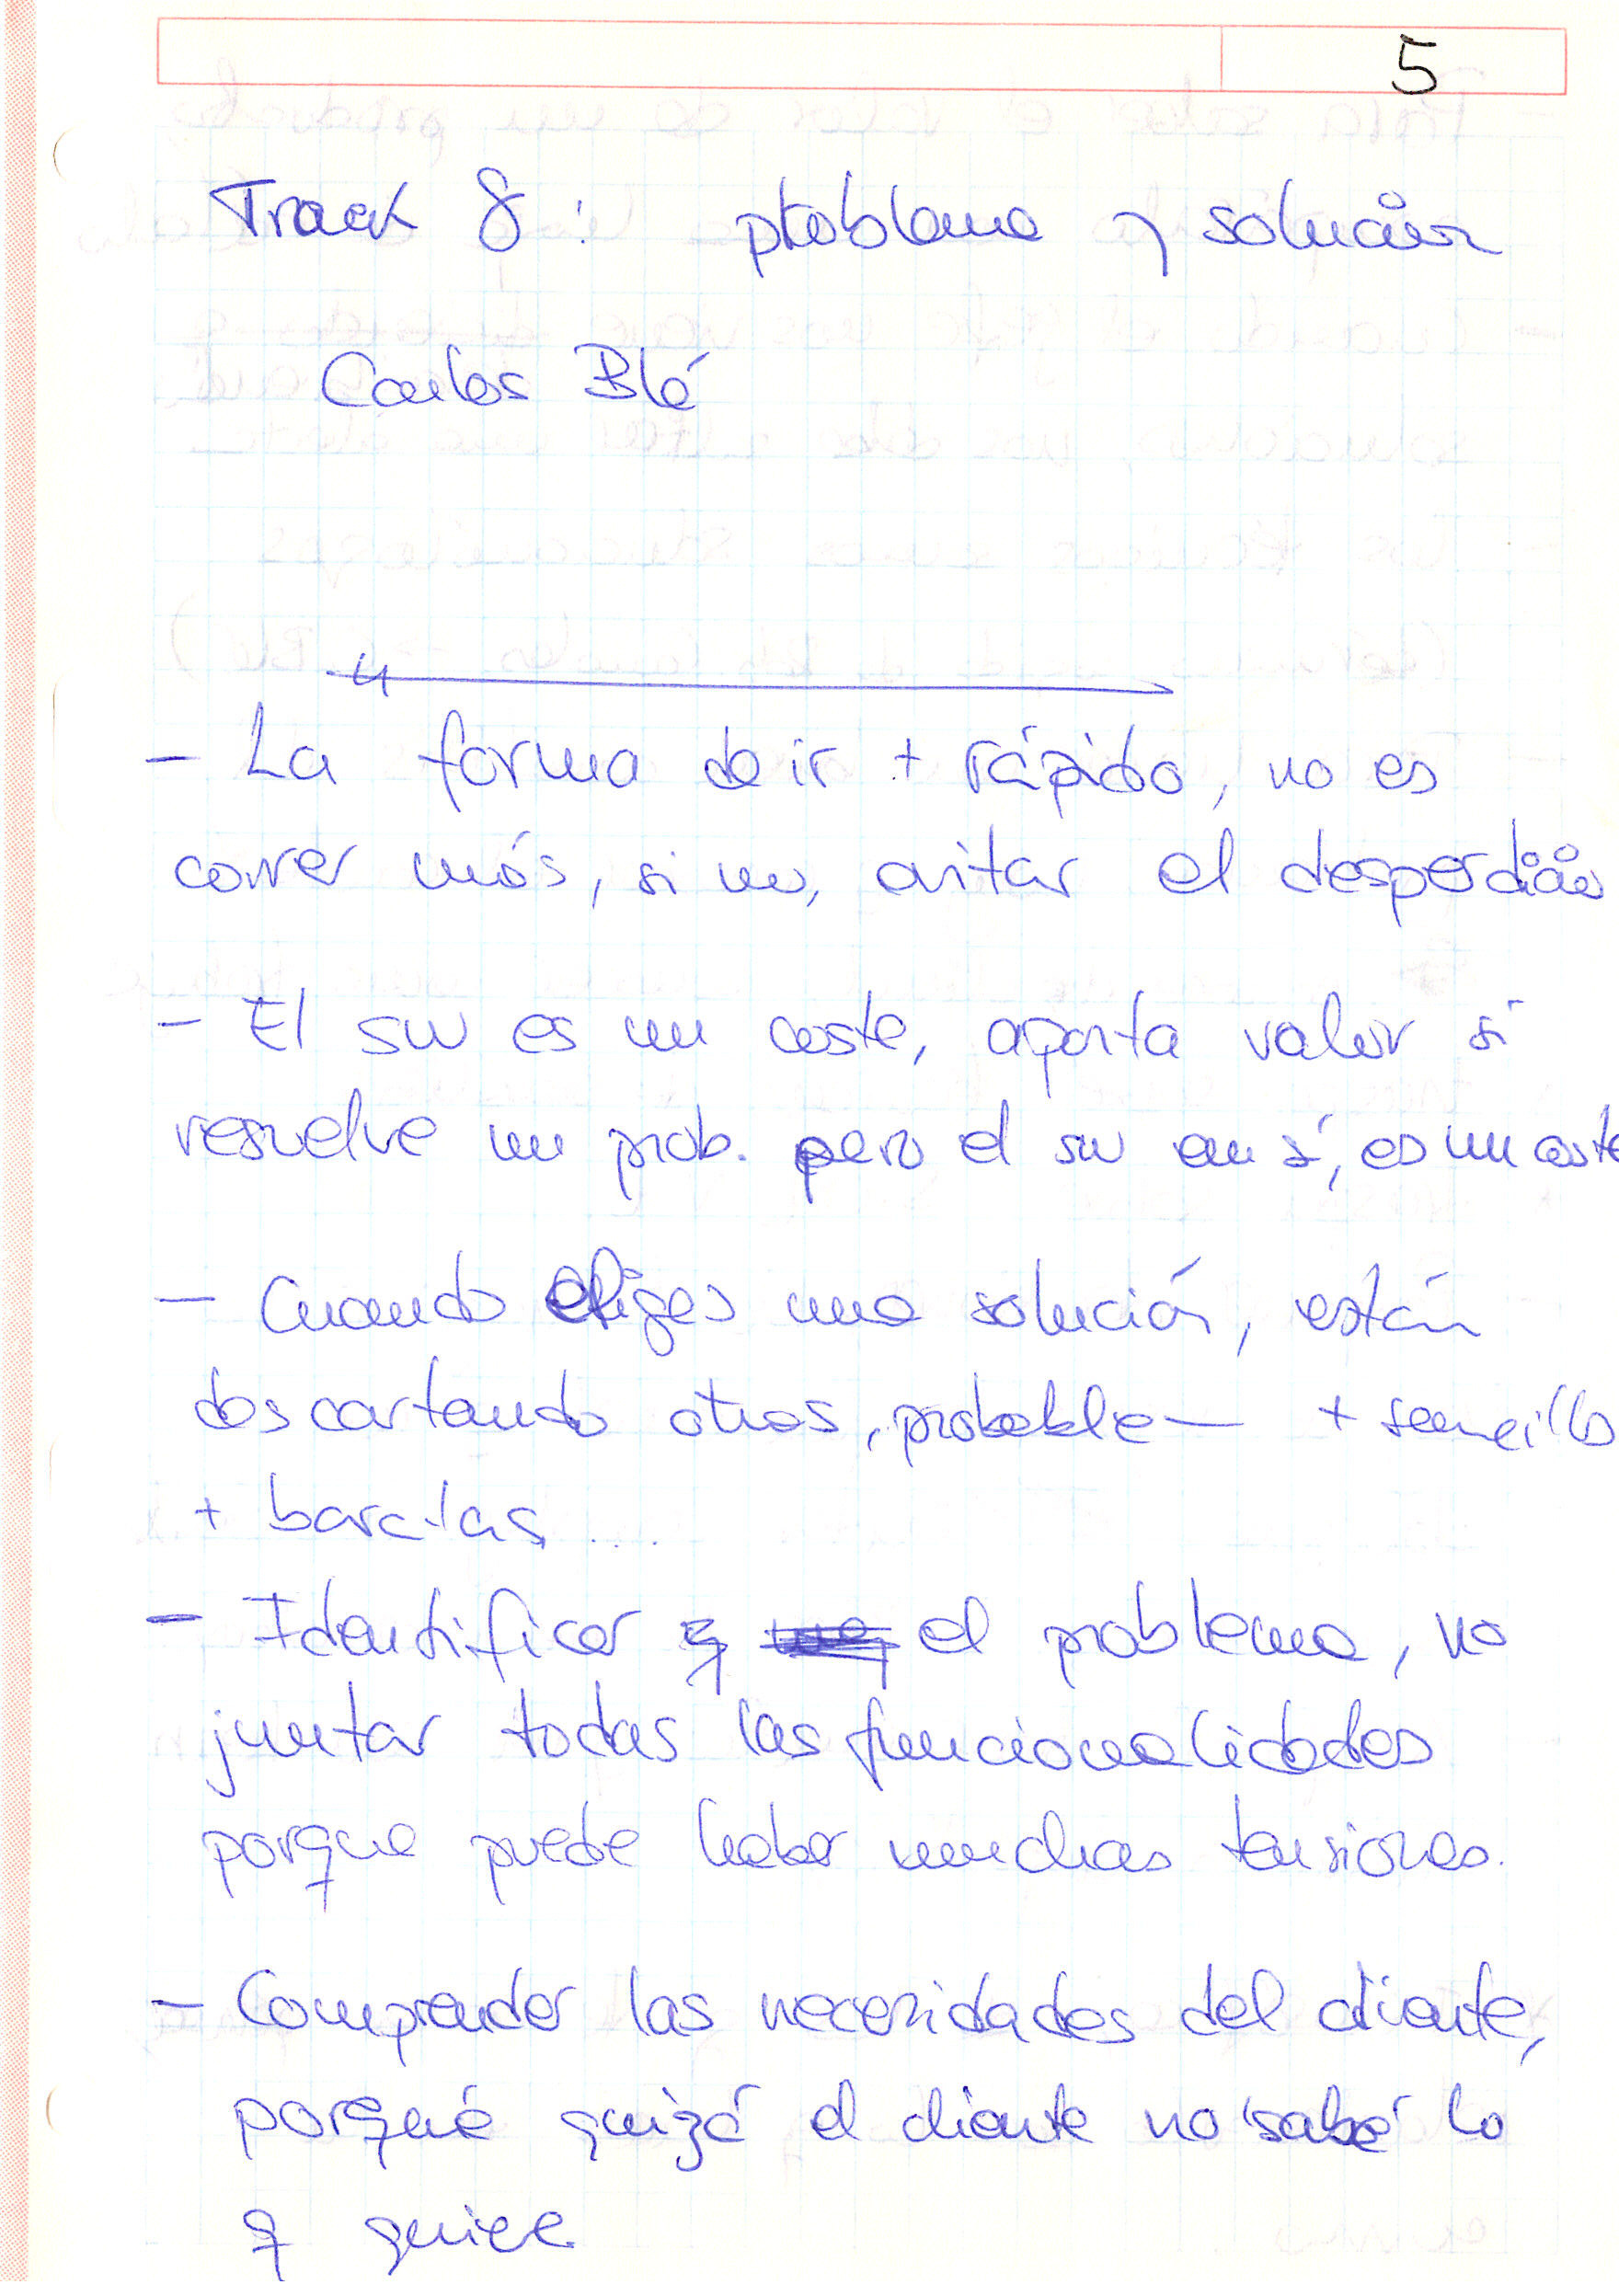 5
Track 8: problema y solución
Carlos Blé
- La forma de ir + rápido, no es
correr más, si no, evitar el desperdicio
- El sw es un coste, aporta valor si
resuelve un prob. pero el sw en sí, es un coste
- Cuando eliges una solución, están
descartando otras, probable— + sencillo
+ baratas ...
- Identificar el problema, no
juntar todas las funcionalidades
porque puede haber muchas tensiones.
- Comprender las necesidades del cliente,
porqué quizá el cliente no sabe lo
q quiere